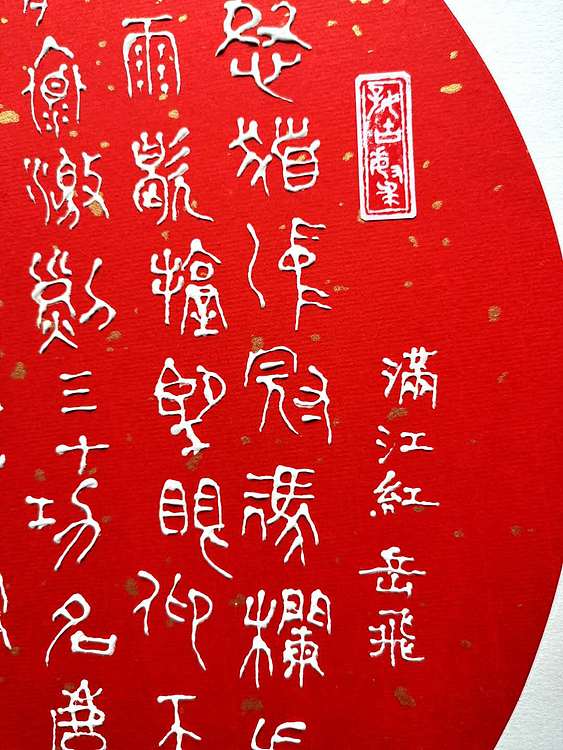 滿江紅 岳飛
怒髮沖冠馮欄
雨歇擡望眼仰天
懷激烈三十功名塵